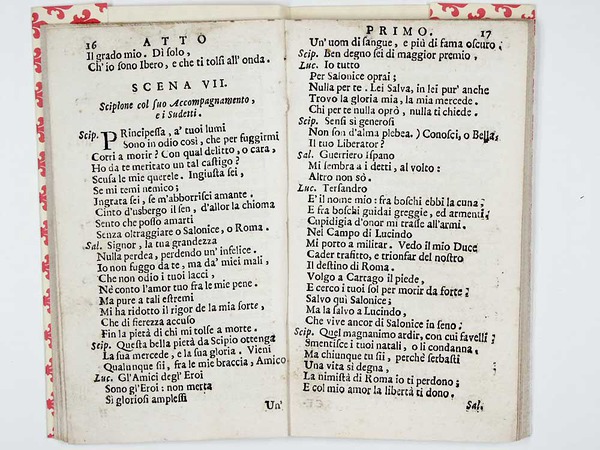 16 ATTO
Il grado mio. Di solo,
Ch'io sono Ibero, e che ti tolsi all'onda.
SCENA VII.
Scipione col suo Accompagnamento,
e i Sudetti.
Scip. PRincipessa, a' tuoi lumi
Sono in odio così, che per fuggirmi
Corri a morir? Con qual delitto, o cara,
Ho da te meritato un tal castigo?
Scusa le mie querele. Ingiusta sei,
Se mi temi nemico;
Ingrata sei, se m'abborrisci amante.
Cinto d'usbergo il sen, d'allor la chioma
Sento che posso amarti
Senza oltraggiare o Salonice, o Roma.
Sal. Signor, la tua grandezza
Nulla perdea, perdendo un' infelice.
Io non fuggo da te, ma da' miei mali,
Che non odio i tuoi lacci,
Nè conto l'amor tuo fra le mie pene.
Ma pure a tali estremi
Mi ha ridotto il rigor de la mia sorte,
Che di fierezza accuso
Fin la pietà di chi mi tolse a morte.
Scip. Questa bella pietà da Scipio ottenga
La sua mercede, e la sua gloria. Vieni
Qualunque sii, fra le mie braccia, Amico
Luc. Gl'Amici degl' Eroi
Sono gl'Eroi: non merta
Sì gloriosi amplessi
Un'
PRIMO. 17
Un' uom di sangue, e più di fama oscuro.
Scip. Ben degno sei di maggior premio,
Luc. Io tutto
Per Salonice oprai;
Nulla per te. Lei Salva, in lei pur' anche
Trovo la gloria mia, la mia mercede.
Chi per te nulla oprò, nulla ti chiede.
Scip. Sensi sì generosi
Non son d'alma plebea.) Conosci, o Bella,
Il tuo Liberator?
Sal. Guerriero Ispano
Mi sembra a i detti, al volto:
Altro non sò.
Luc. Tersandro
E' il nome mio: fra boschi ebbi la cuna;
E fra boschi guidai greggie, ed armenti.
Cupidigia d'onor mi trasse all'armi.
Nel Campo di Lucindo
Mi porto a militar. Vedo il mio Duce
Cader trafitto, e trionfar del nostro
Il destino di Roma.
Volgo a Cartago il piede,
E cerco i tuoi sol per morir da forte;
Salvo quì Salonice;
Ma la salvo a Lucindo,
Che vive ancor di Salonice in seno;
Scip. Quel magnanimo ardir, con cui favelli,
Smentisce i tuoi natali, o li condanna.
Ma chiunque tu sii, perchè serbasti
Una vita sì degna,
La nimistà di Roma io ti perdono;
E col mio amor la libertà ti dono.
Sal.